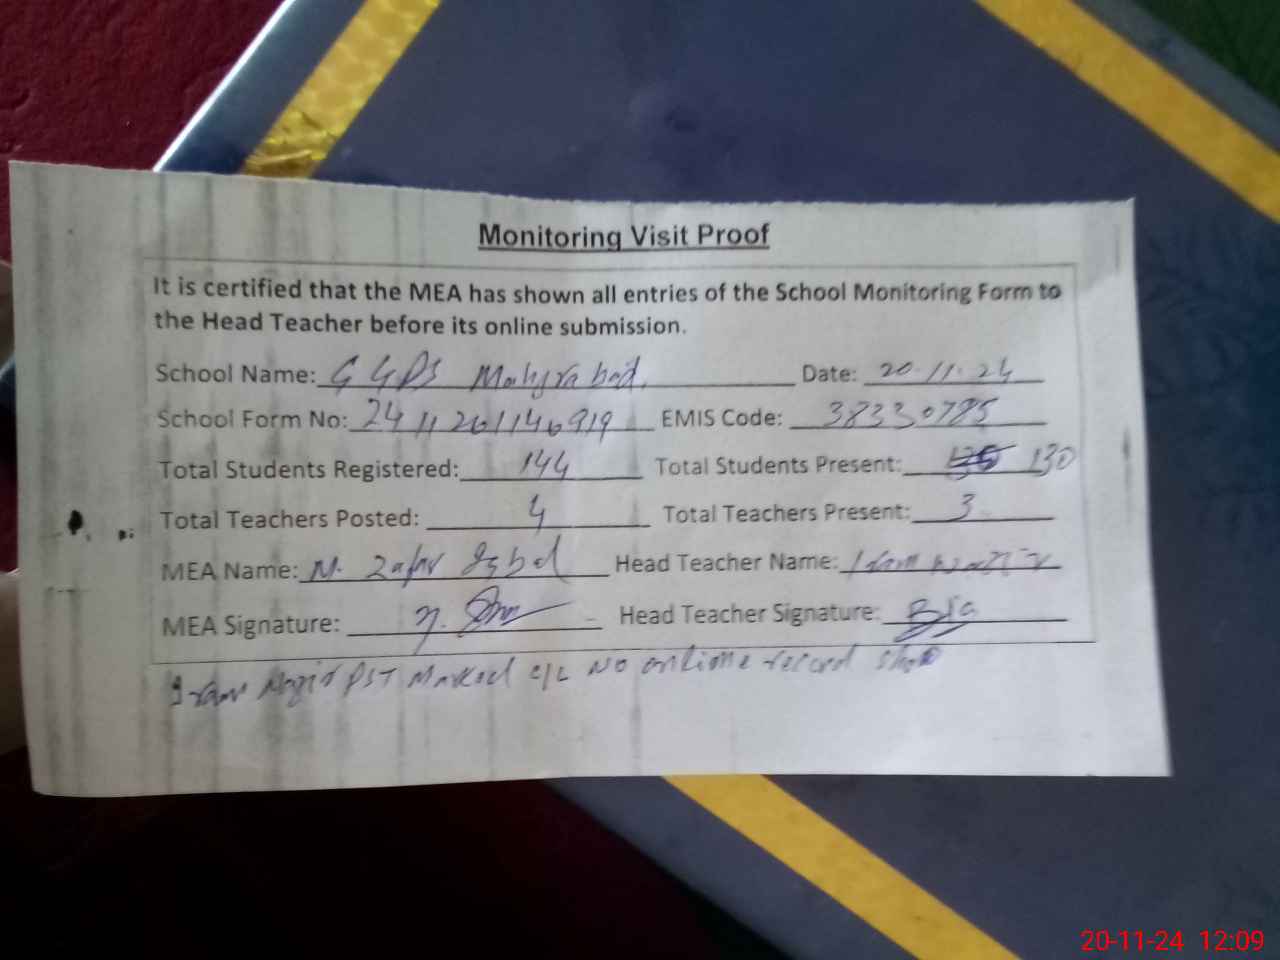 Monitoring Visit Proof
It is certified that the MEA has shown all entries of the School Monitoring Form to
the Head Teacher before its online submission.
School Name: GGPS Mahyrabad, Date: 20-11-24
School Form No: 2411201146919 EMIS Code: 38330785
Total Students Registered: 144 Total Students Present: 130
Total Teachers Posted: 4 Total Teachers Present: 3
MEA Name: M. Zafar Iqbal Head Teacher Name:
MEA Signature: Head Teacher Signature:
PST Marked C/L NO online record
20-11-24 12:09